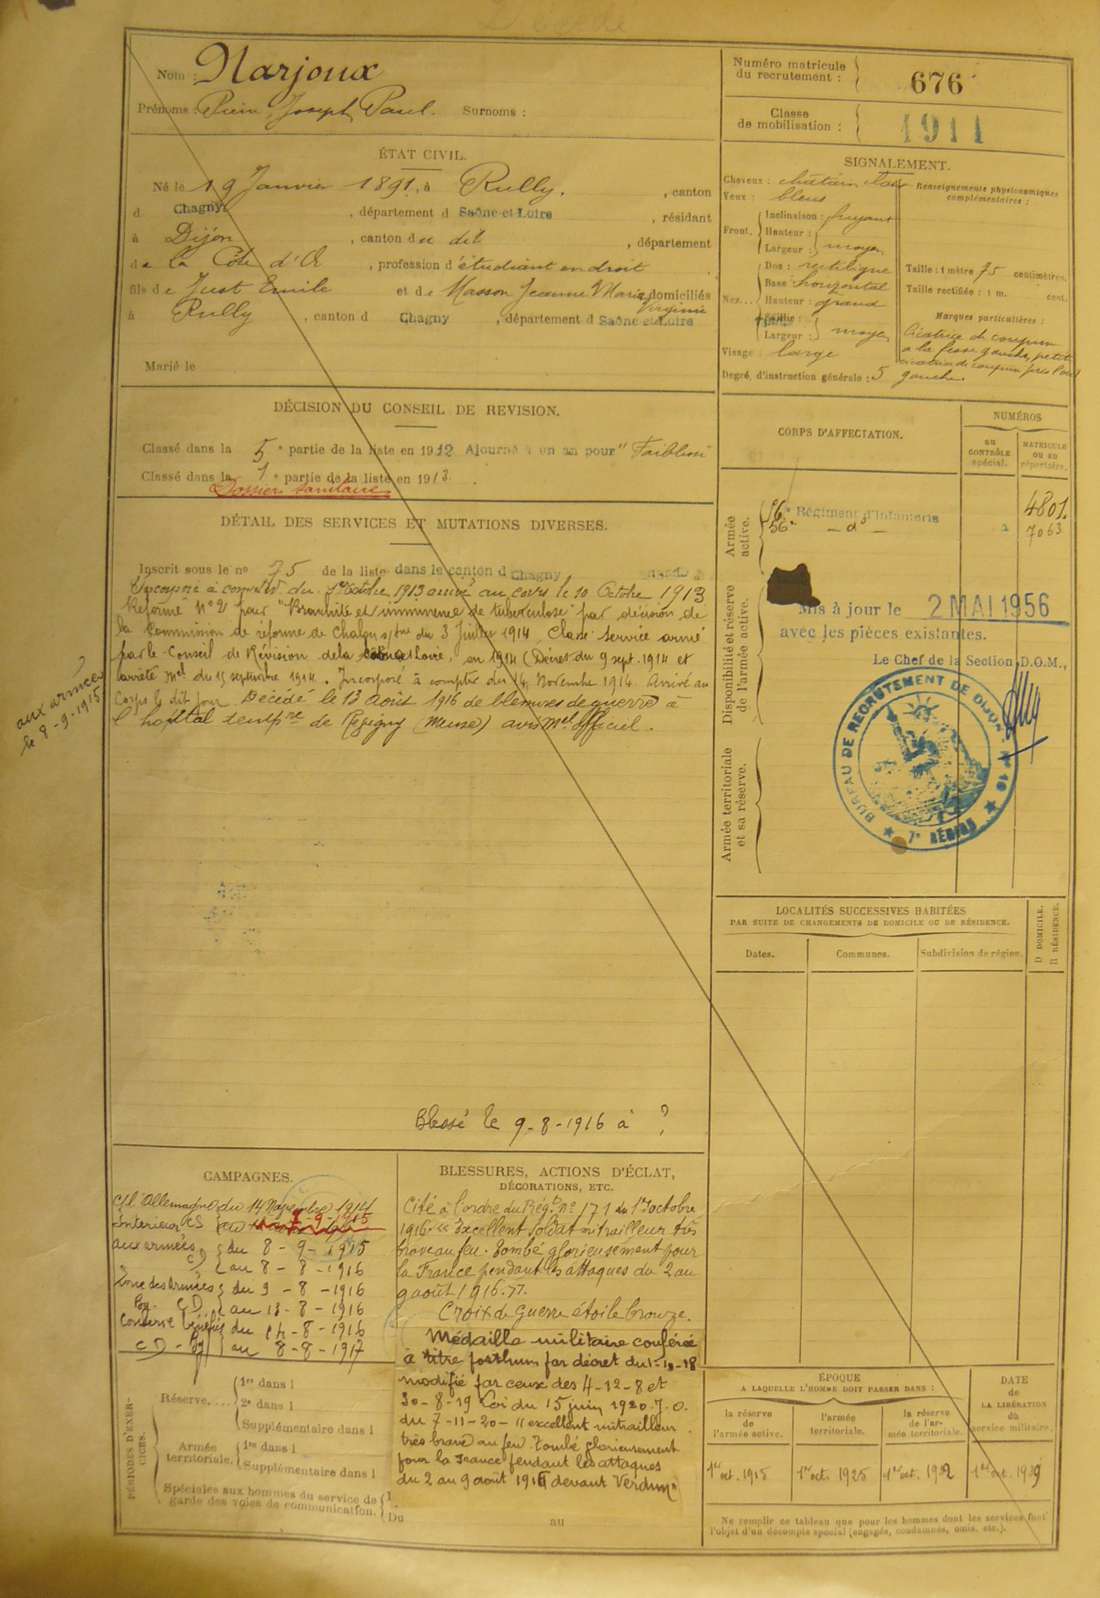 Décédé
Nom : Narjoux
Prénoms : Pierre Joseph Paul. Surnoms :
Numéro matricule du recrutement : 676
Classe de mobilisation : 1911
ÉTAT CIVIL.
Né le 19 Janvier 1891, à Rully. , canton
d Chagny , département d Saône-et-Loire , résidant
à Dijon , canton du dit , département
de la Côte d'Or , profession d'étudiant en droit
fils de Just Emile et de Masson Jeanne Marie Virginie domiciliés
à Rully , canton d Chagny , département d Saône-et-Loire
Marié le
SIGNALEMENT.
Cheveux : châtain
Yeux : bleus
Front. Inclinaison : fuyant
Hauteur :
Largeur : moyen
Nez... Dos : rectiligne
Base : horizontal
Hauteur : grand
Saillie :
Largeur : moyen
Visage : large
Degré d'instruction générale : 5
Renseignements physionomiques complémentaires :
Taille : 1 mètre 75 centimètres.
Taille rectifiée : 1 m. cent.
Marques particulières :
Cicatrice de
à la fesse gauche, petite
cicatrice de près l'œil
gauche.
DÉCISION DU CONSEIL DE REVISION.
Classé dans la 5e partie de la liste en 1912 Ajourné à un an pour "Faiblesse"
Classé dans la 1e partie de la liste en 1913.
Dossier sanitaire
DÉTAIL DES SERVICES ET MUTATIONS DIVERSES.
Inscrit sous le no 75 de la liste dans le canton d Chagny
Incorporé à compter du 1er octobre 1913 arrivé au corps le 10 Octobre 1913
Réformé No 2 pour "Bronchite et imminence de tuberculose" par décision de
la Commission de réforme de Chalon s/Sne du 3 Juillet 1914. Classé service armé
par le Conseil de Révision de la Saône et Loire, en 1914 (Décret du 9 sept. 1914 et
arrêté mel du 15 septembre 1914. Incorporé à compter du 14 Novembre 1914. Arrivé au
Corps le dit jour. Décédé le 13 août 1916 de blessures de guerre à
l'hôpital tempre de Revigny (Meuse) avis Mel officiel.
aux armées
le 8-9-1915
Blessé le 9-8-1916 à ?
CORPS D'AFFECTATION.
NUMÉROS
AU CONTRÔLE spécial.
MATRICULE OU AU répertoire.
Armée active.
56e Régiment d'Infanterie 4801
56e - do - 7063
Disponibilité et réserve de l'armée active.
Mis à jour le 2 MAI 1956
avec les pièces existantes.
Le Chef de la Section D.O.M.,
BUREAU DE RECRUTEMENT DE DIJON
7e RÉGION
Armée territoriale et sa réserve.
LOCALITÉS SUCCESSIVES HABITÉES
PAR SUITE DE CHANGEMENTS DE DOMICILE OU DE RÉSIDENCE.
Dates. Communes. Subdivision de région.
D DOMICILE.
R RÉSIDENCE.
CAMPAGNES.
C/ l'Allemagne du 14 Novembre 1914
Intérieur CS au 7-9-1915
aux armées du 8-9-1915
CD au 8-8-1916
Zone des Armées du 9-8-1916
CD au 13-8-1916
Conserve bénéfice du 14-8-1916
CD au 8-8-1917
BLESSURES, ACTIONS D'ÉCLAT,
DÉCORATIONS, ETC.
Cité à l'ordre du Régt no 171 du 1er octobre
1916 "Excellent soldat mitrailleur très
brave au feu. Tombé glorieusement pour
la France pendant les attaques du 2 au
9 août 1916."
Croix de Guerre étoile bronze.
Médaille militaire conférée
à titre posthum par décret du 1-10-18
modifié par ceux des 4-12-8 et
30-8-19 Loi du 15 juin 1920 J.O.
du 7-11-20 "excellent mitrailleur
très brave au feu Tombé glorieusement
pour la France pendant les attaques
du 2 au 9 août 1916 devant Verdun"
PÉRIODES D'EXERCICES.
Réserve.... 1re dans l
2e dans l
Supplémentaire dans l
Armée territoriale. 1re dans l
Supplémentaire dans l
Spéciales aux hommes du service de garde des voies de communication.
Du au
ÉPOQUE
A LAQUELLE L'HOMME DOIT PASSER DANS :
la réserve de l'armée active.
l'armée territoriale.
la réserve de l'armée territoriale.
DATE de LA LIBÉRATION du service militaire.
1er oct. 1915 1er oct. 1925 1er oct. 1932 1er oct. 1939
Ne remplir ce tableau que pour les hommes dont les services font
l'objet d'un décompte spécial (engagés, condamnés, omis, etc.).